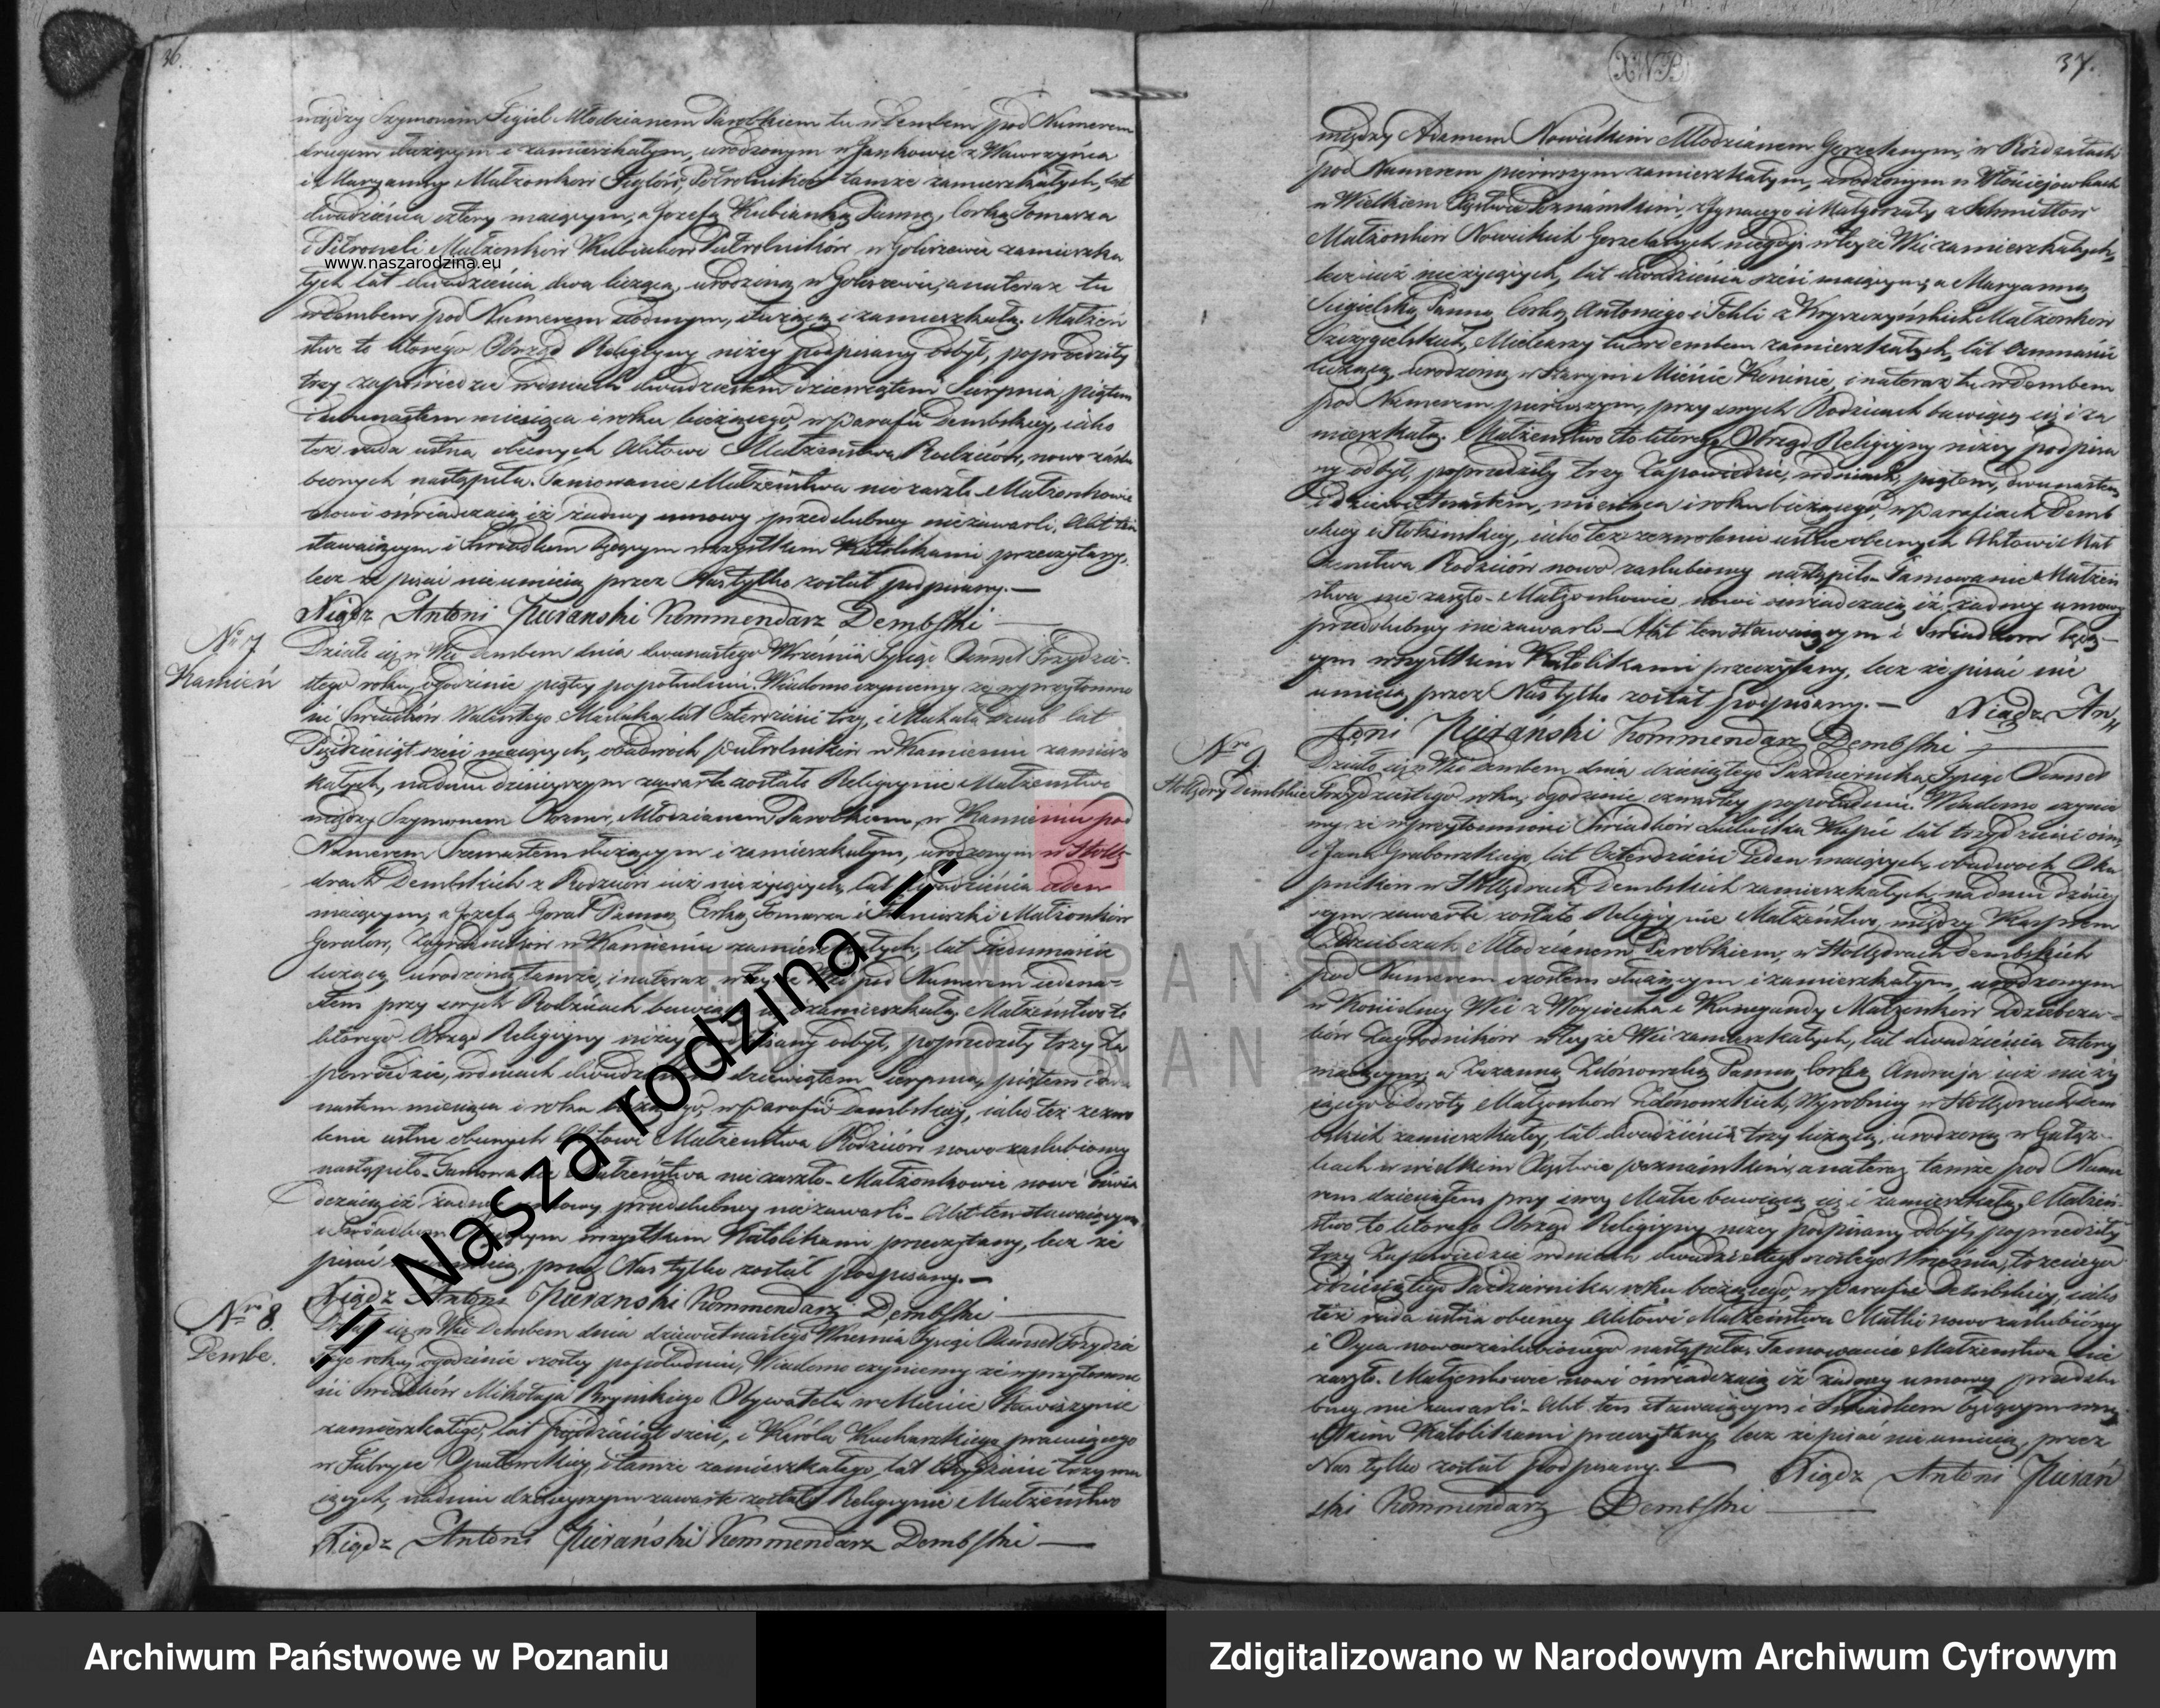 36.
między Szymonem Figiel Młodzianem Parobkiem tu w Dembem pod Numerem
drugim służącym i zamieszkałym, urodzonym w Jankowie z Wawrzyńca
i Maryanny Małżonków Figlów, Półrolników tamże zamieszkałych, lat
dwadzieścia cztery maiącym, a Jozefą Kubianką Panną, Corką Tomasza
i Petroneli Małżonków Kubiaków Półrolników w zamieszka
www.naszarodzina.eu
łych lat dwadzieścia dwa licząca, urodzoną w a na teraz tu
w Dembem pod Numerem siodmym, służącą i zamieszkałą. Małżeń
stwo to ktorego Obrząd Religiyny niżey podpisany odbył, poprzedziły
trzy zapowiedzie w dniach dwudziestem dziewiątem Sierpnia, piątem
i dwunastem miesiąca i roku bieżącego, w Parafii Dembskiey, iako
też rada ustna obecnych Aktowi Małżeństwa Rodziców, nowo zaślu
bionych nastąpiła. Tamowanie Małżeństwa nie zaszło. Małżonkowie
nowi oświadczaią iż żadney umowy przedślubney niezawarli. Akt ten
stawaiącym i Swiadkom będącym wszystkiem Katolikami przeczytany,
lecz że pisać nieumieią przez Nas tylko został podpisany.—
Xiądz Antoni Pierański Kommendarz Dembski
Nro 7
Kamień
Działo się w Wsi Dembem dnia dwunastego Września Tysiąc Ośmset Trzydzie-
stego roku, o godzinie piątey popołudniu. Wiadomo czyniemy że w przytomno
ści Swiadków Walentego lat Czterdzieści trzy, i Michała lat
Pięćdziesiąt sześć maiących, obudwóch półrolników w Kamieniu zamiesz
kałych, na dniu dzisieyszym zawarte zostało Religiynie Małżeństwo
między Szymonem Młodzianem Parobkiem, w Kamieniu pod
Numerem służącym i zamieszkałym, urodzonym w Hollę-
drach Dembskich z Rodziców iuż nieżyiących, lat dwadzieścia ieden
maiącym, a Jozefą Goral Panną Corką Tomasza i Franciszki Małżonków
Goralów, Zagrodników w Kamieniu zamieszkałych, lat siedmnaście
liczącą urodzoną tamże, i na teraz w teyże Wsi pod Numerem iedena-
stem przy swych Rodzicach bawiącą się i zamieszkałą. Małżeństwo to
ktorego Obrząd Religiyny niżey podpisany odbył, poprzedziły trzy Za
powiedzie, w dniach dwudziestem dziewiątem Sierpnia, piątem i dwu
nastem miesiąca i roku bieżącego, w Parafii Dembskiey, iako też zezwo
lenie ustne obecnych Aktowi Małżeństwa Rodziców nowo zaślubioney
nastąpiło. Tamowanie Małżeństwa nie zaszło. Małżonkowie nowi oświa
dczaią iż żadney umowy przedślubney nie zawarli. Akt ten stawaiącym
i Swiadkom będącym wszystkiem Katolikami przeczytany, lecz że
pisać nieumieią, przez Nas tylko został podpisany.—
Xiądz Antoni Pierański Kommendarz Dembski
Nro 8.
Dembe.
Działo się w Wsi Dembem dnia dziewiętnastego Września Tysiąc Ośmset Trzydzie
stego roku, o godzinie szostey popołudniu, Wiadomo czyniemy że w przytomno
ści Swiadków Mikołaja Obywatela w Mieście Stawiszynie
zamieszkałego, lat pięćdziesiąt sześć, i Karola Kucharskiego pracuiącego
w Fabryce Opatowskiey, i tamże zamieszkałego, lat trzydzieści trzy ma
iących, na dniu dzisieyszym zawarte zostało Religiynie Małżeństwo
Xiądz Antoni Pierański Kommendarz Dembski
XWP
37.
między Adamem Nowickim Młodzianem Gorzelanym, w
pod Numerem pierwszym zamieszkałym, urodzonym w Włościejewkach
w Wielkiem Xięstwie Poznańskim, z Ignacego i Małgorzaty z Schmittów
Małżonków Nowickich Gorzelanych niegdyś w teyże Wsi zamieszkałych,
lecz iuż nieżyiących, lat dwadzieścia sześć maiącym, a Maryanną
Panną, Corką Antoniego i Tekli z Małżonków
Mielcarzy tu w Dembem zamieszkałych, lat Ośmnaście
liczącą, urodzoną w Starym Mieście Koninie, i na teraz tu w Dembem
pod Numerem pierwszym, przy swych Rodzicach bawiącą się i za
mieszkałą. Małżeństwo to ktorego Obrząd Religiyny niżey podpisa
ny odbył, poprzedziły trzy Zapowiedzie, w dniach, piątem, dwunastem
i dziewiętnastem, miesiąca i roku bieżącego, w Parafiach Demb
skiey i iako też zezwolenie ustne obecnych Aktowi Mał
żeństwa Rodziców nowo zaślubioney nastąpiło. Tamowanie Małżeń
stwa nie zaszło. Małżonkowie nowi oświadczaią iż żadney umowy
przedślubney niezawarli — Akt ten stawaiącym i Swiadkom będą-
cym wszystkiem Katolikami przeczytany, lecz że pisać nie
umieią przez Nas tylko został podpisany. — Xiądz An,,
toni Pierański Kommendarz Dembski
Nro 9.
Hollędry Dembskie
Działo się w Wsi Dembem dnia dziesiątego Października Tysiąc Ośmset
Trzydziestego roku, o godzinie czwartey popołudniu. Wiadomo czynie
my że w przytomności Swiadków Ludwika lat trzydzieści ośm
i Jana Grabowskiego, lat Czterdzieści ieden maiących, obudwoch Oku
pników w Hollędrach Dembskich zamieszkałych, na dniu dzisiey
szym zawarte zostało Religiynie Małżeństwo, między Kasprem
Młodzianem Parobkiem, w Hollędrach Dembskich
pod Numerem szostem służącym i zamieszkałym, urodzonym
w Wsi z Woyciecha i Kunegundy Małżonków
Zagrodników w teyże Wsi zamieszkałych, lat dwadzieścia cztery
maiącym, a Zuzanną Panną Corką Andrzeja iuż nieży
iącego i Doroty Małżonków Wyrobnicy w Hollędrach Dem
bskich zamieszkałey, lat dwadzieścia trzy liczącą, urodzoną w
w wielkim Xięstwie poznańskim, a na teraz tamże pod Nume
rem dziesiątem przy swey Matce bawiącą się i zamieszkałą. Małżeń-
stwo to ktorego Obrząd Religiyny niżey podpisany odbył, poprzedziły
trzy Zapowiedzie w dniach dwudziestego szostego Września, trzeciego
i dziesiątego Października roku bieżącego, w Parafii Dembskiey, iako
też rada ustna obecney Aktowi Małżeństwa Matki nowozaślubioney
i Oyca nowozaślubionego nastąpiła. Tamowanie Małżeństwa nie
zaszło. Małżonkowie nowi oświadczaią iż żadney umowy przedślu
bney nie zawarli. Akt ten stawaiącym i Swiadkom będącym wszy
stkiem Katolikami przeczytany, lecz że pisać nie umieią, przez
Nas tylko został podpisany. — Xiądz Antoni Pierań
ski Kommendarz Dembski
ARCHIWUM PAŃSTWOWE
W POZNANIU
-= Nasza rodzina =-
Archiwum Państwowe w Poznaniu
Zdigitalizowano w Narodowym Archiwum Cyfrowym